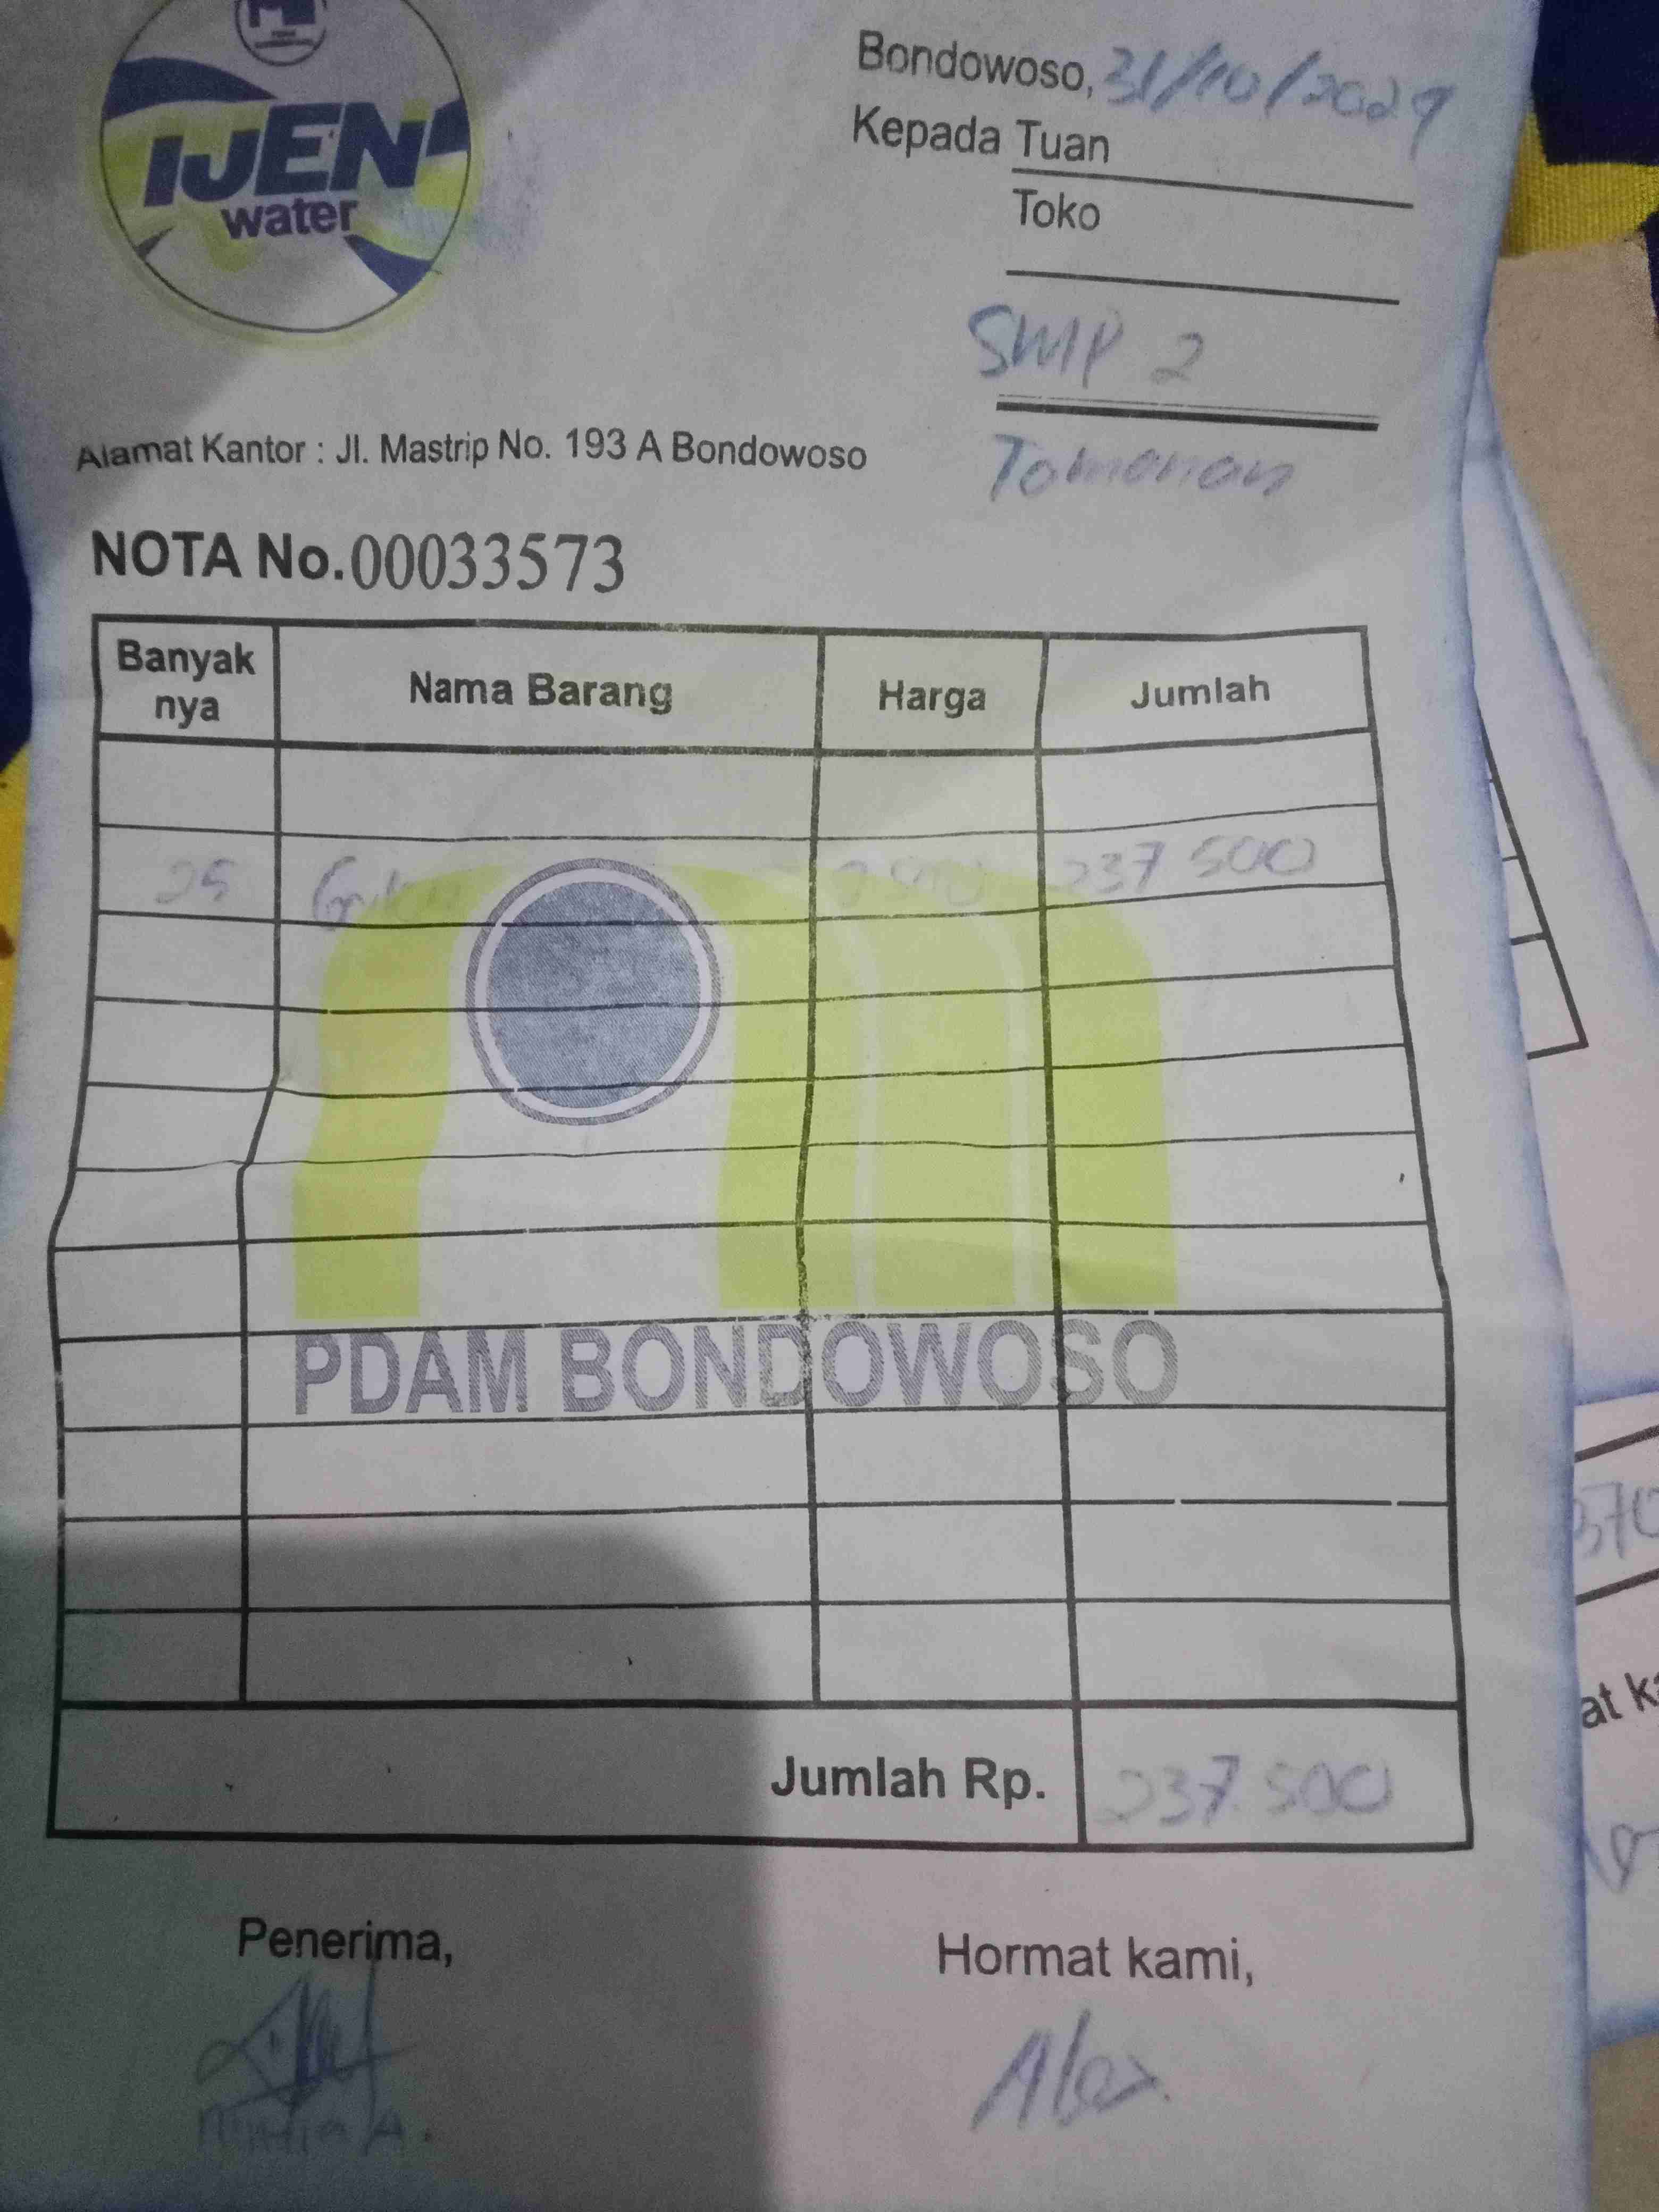 IJEN
water
Bondowoso, 31/10/2024
Kepada Tuan
Toko
SMP 2
Tamanan
Alamat Kantor : Jl. Mastrip No. 193 A Bondowoso
NOTA No. 00033573
Banyak nya Nama Barang Harga Jumlah
25 9500 237 500
PDAM BONDOWOSO
Jumlah Rp. 237.500
Penerima, Hormat kami,
Alex
370
at ka